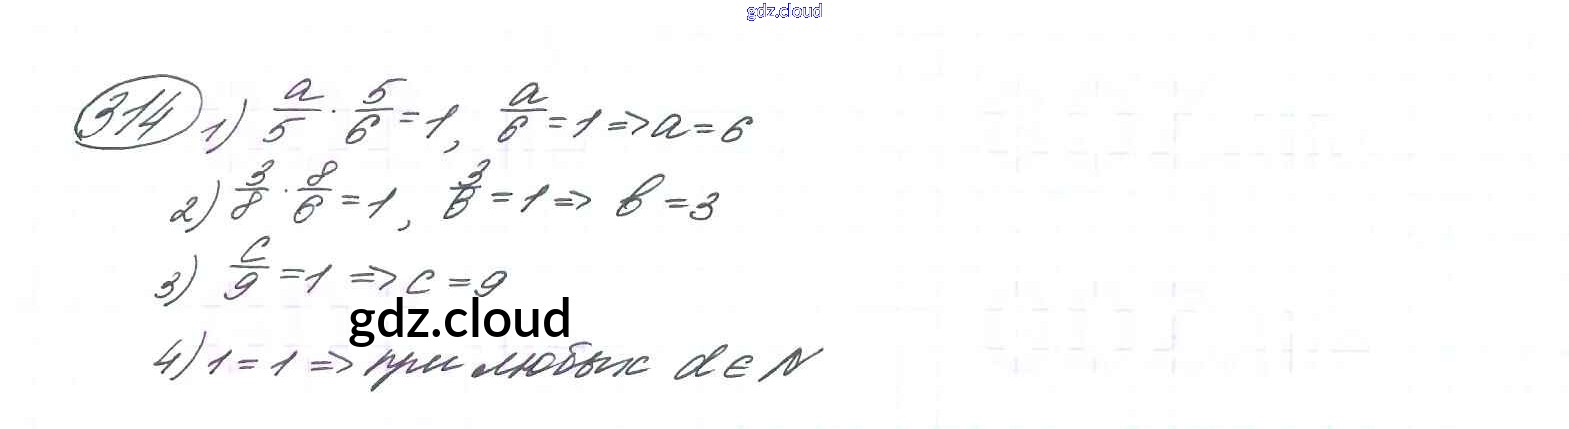 gdz.cloud
314 1) a/5 · 5/6 = 1, a/6 = 1 => a = 6
2) 3/8 · 8/б = 1, 3/в = 1 => в = 3
3) c/9 = 1 => c = 9
gdz.cloud
4) 1 = 1 => при любых d ∈ N